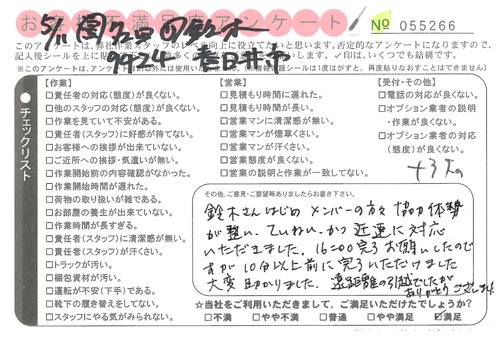 お 不満足 アンケート
№ 055266
5/11 (園) 名古屋 鈴木
9724 春日井市
このアンケートは、弊社作業スタッフのレベル向上に役立てたいと思います。否定的なアンケートになりますので、
記入後シールを上に
※このアンケートは、アンケート
【作業】
□責任者の対応(態度)が良くない。
□他のスタッフの対応(態度)が良くない。
□作業を見ていて不安がある。
□責任者(スタッフ)に好感が持てない。
□お客様への挨拶が出来ていない。
□ご近所への挨拶・気遣いが無い。
□作業開始前の内容確認がなかった。
□作業開始時間が遅れた。
□荷物の取り扱いが雑である。
□お部屋の養生が出来ていない。
□作業時間が長すぎる。
□責任者(スタッフ)に清潔感が無い。
□責任者(スタッフ)が汗くさい。
□トラックが汚い。
□梱包資材が汚い。
□運転が不安(下手)である。
□靴下の履き替えをしてない。
□スタッフにやる気がみられない。
【営業】
□見積もり時間に遅れた。
□見積もり時間が長い。
□営業マンに清潔感が無い。
□営業マンが煙草くさい。
□営業マンが汗くさい。
□営業態度が良くない。
□営業の説明と作業が一致してない。
【受付・その他】
□電話の対応が良くない。
□オプション業者の説明
・作業が良くない。
□オプション業者の対応
(態度)が良くない。
チェックリスト
その他、ご意見・ご要望等ありましたらお書き下さい。
鈴木さんはじめ メンバーの方々 協力体勢
が整い、ていねい、かつ 迅速に対応
いただきました。16:00完了お願いしたので
すが 10分以上前に完了いただけました
大変助かりました。遠距離の引越でしたが
ありがとうございました
☆当社をご利用いただきまして、ご満足いただけたでしょうか?
□不満 □やや不満 □普通 □やや満足 ☑満足